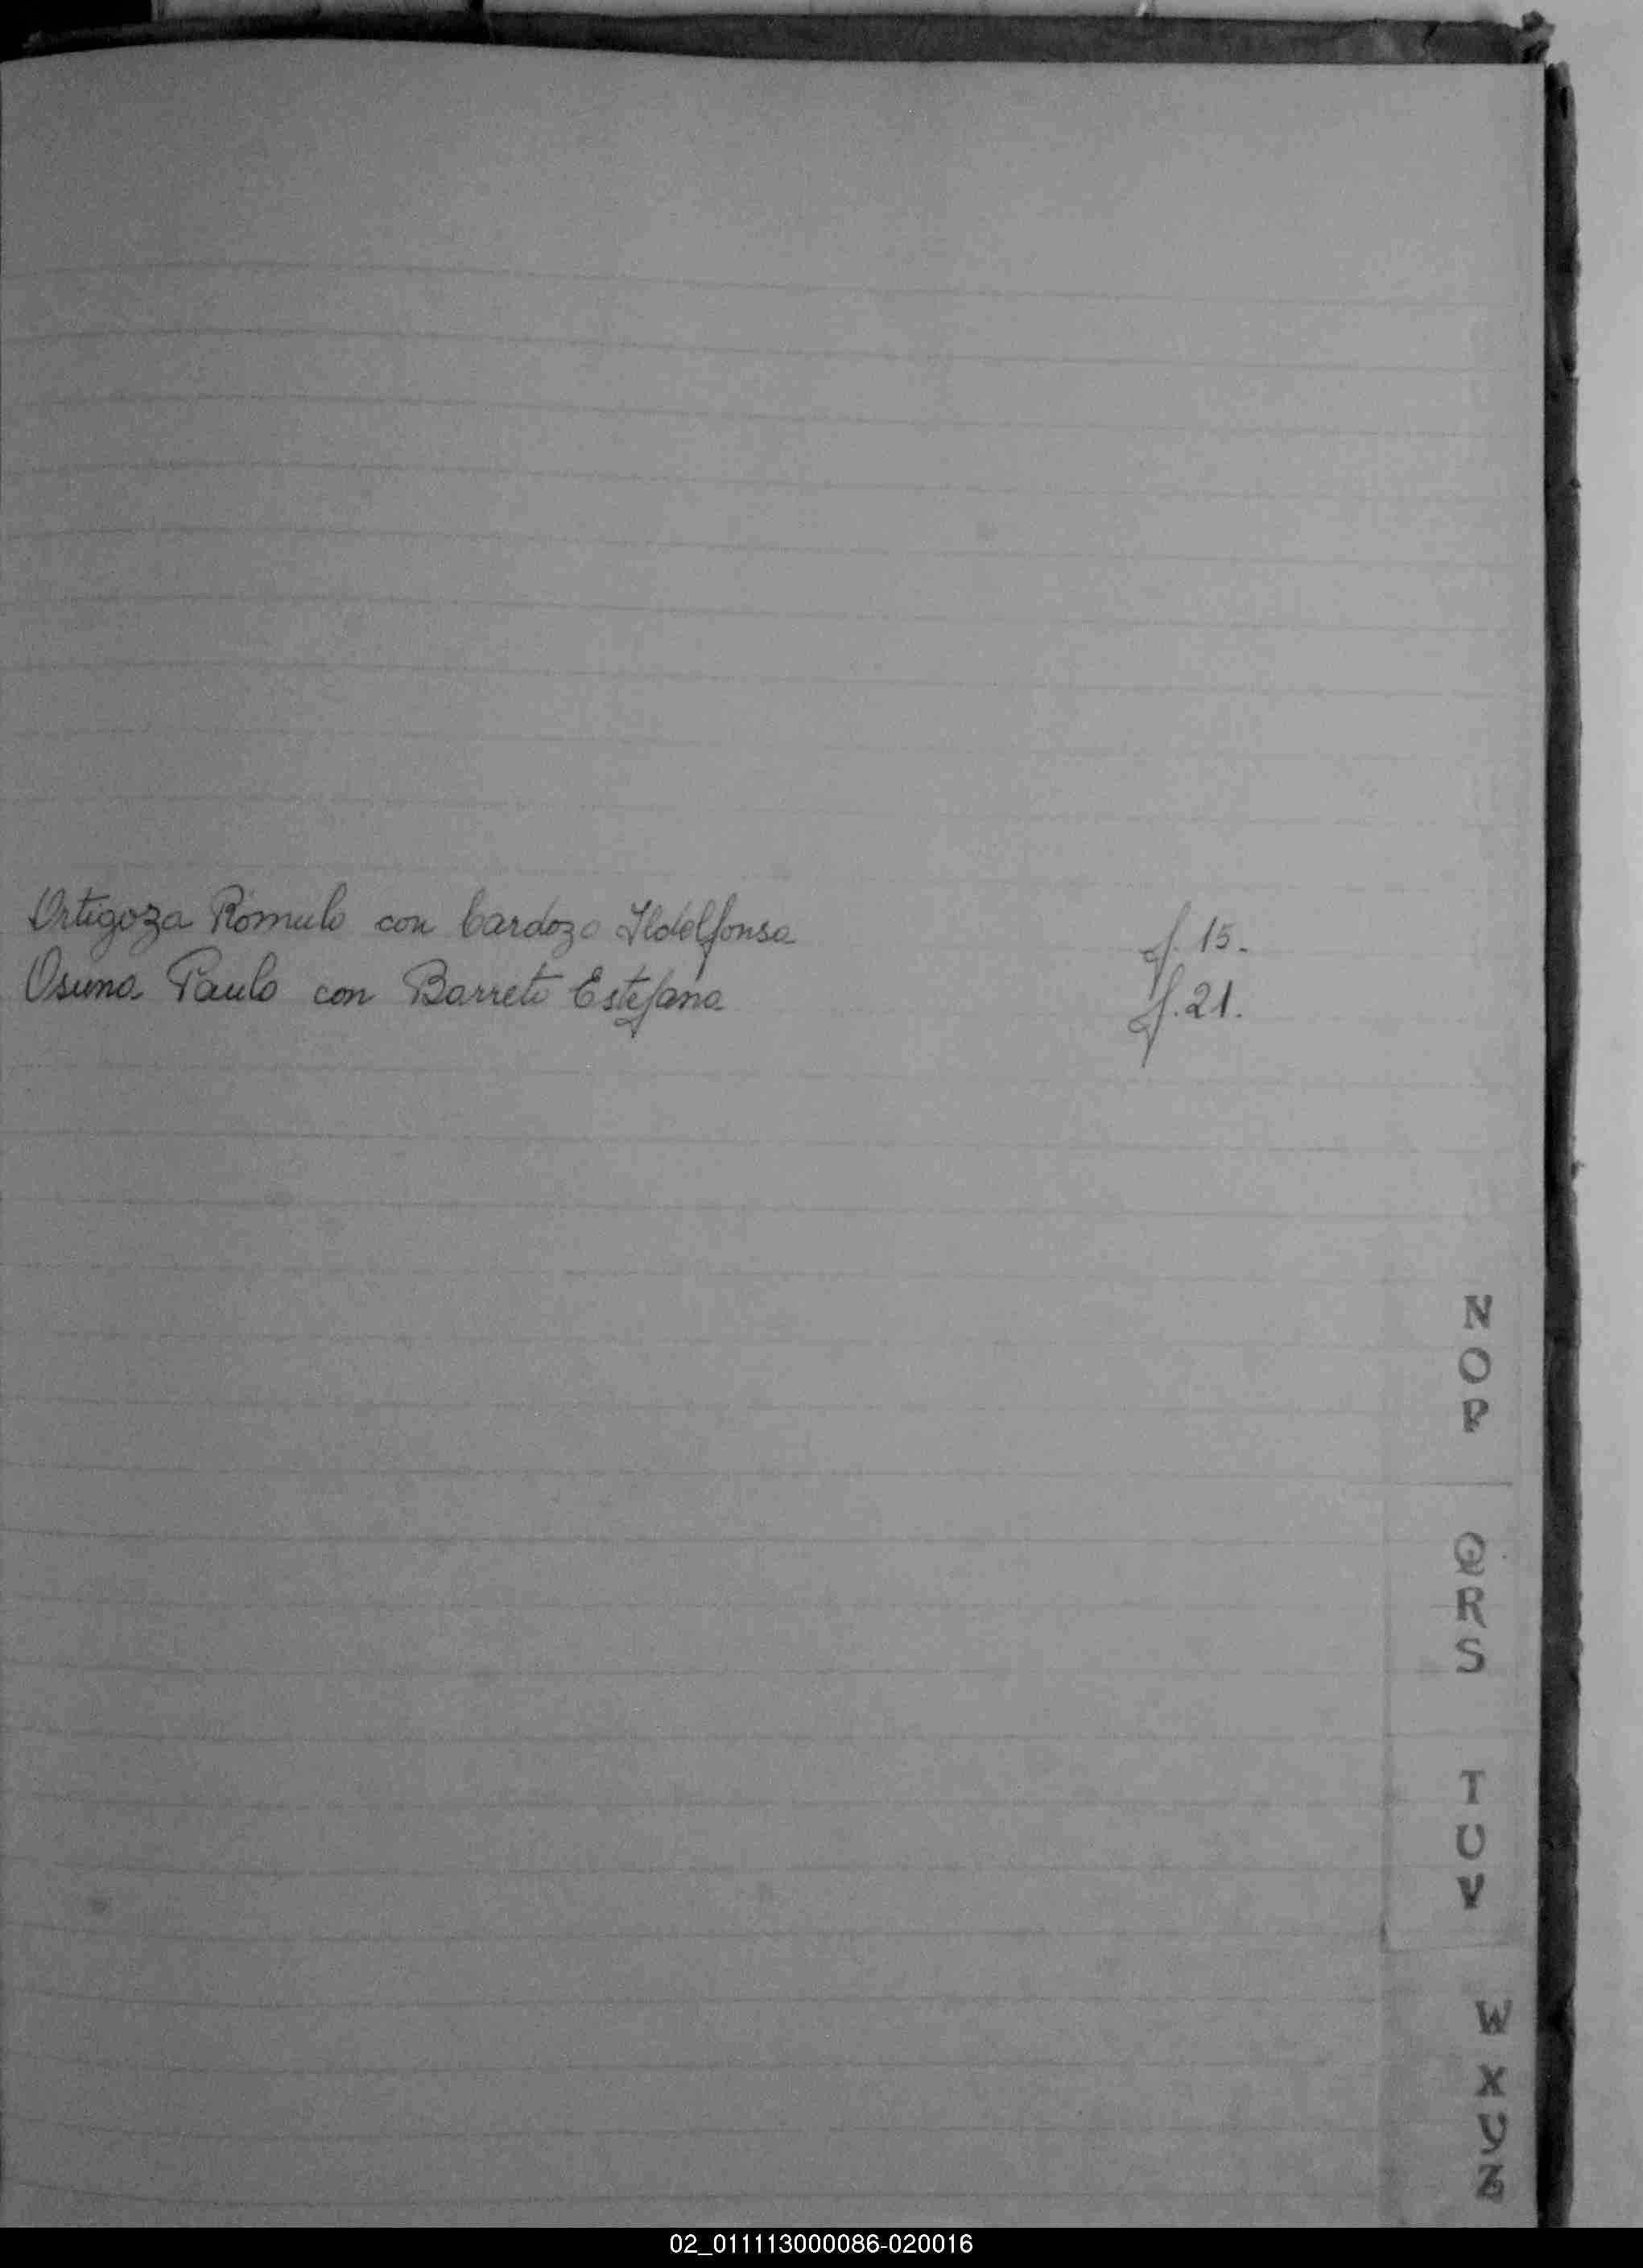 Ortigoza Rómulo con Cardozo Ildelfonsa f. 15.
Osuna Paulo con Barreto Estefana f. 21.
N
O
P
Q
R
S
T
U
V
W
X
Y
Z
02_011113000086-020016